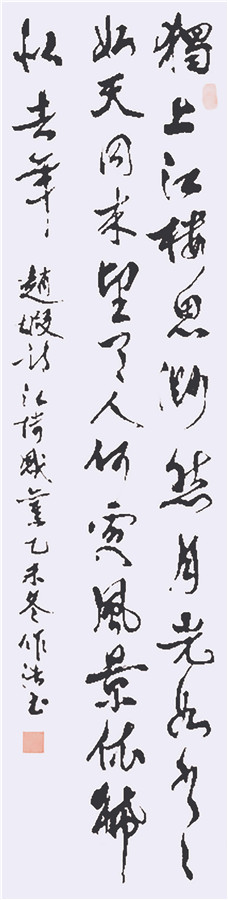 獨上江樓思渺然月光如水々
如天同来望月人何處風景依稀
似去年
趙嘏诗江樓感舊乙未冬作